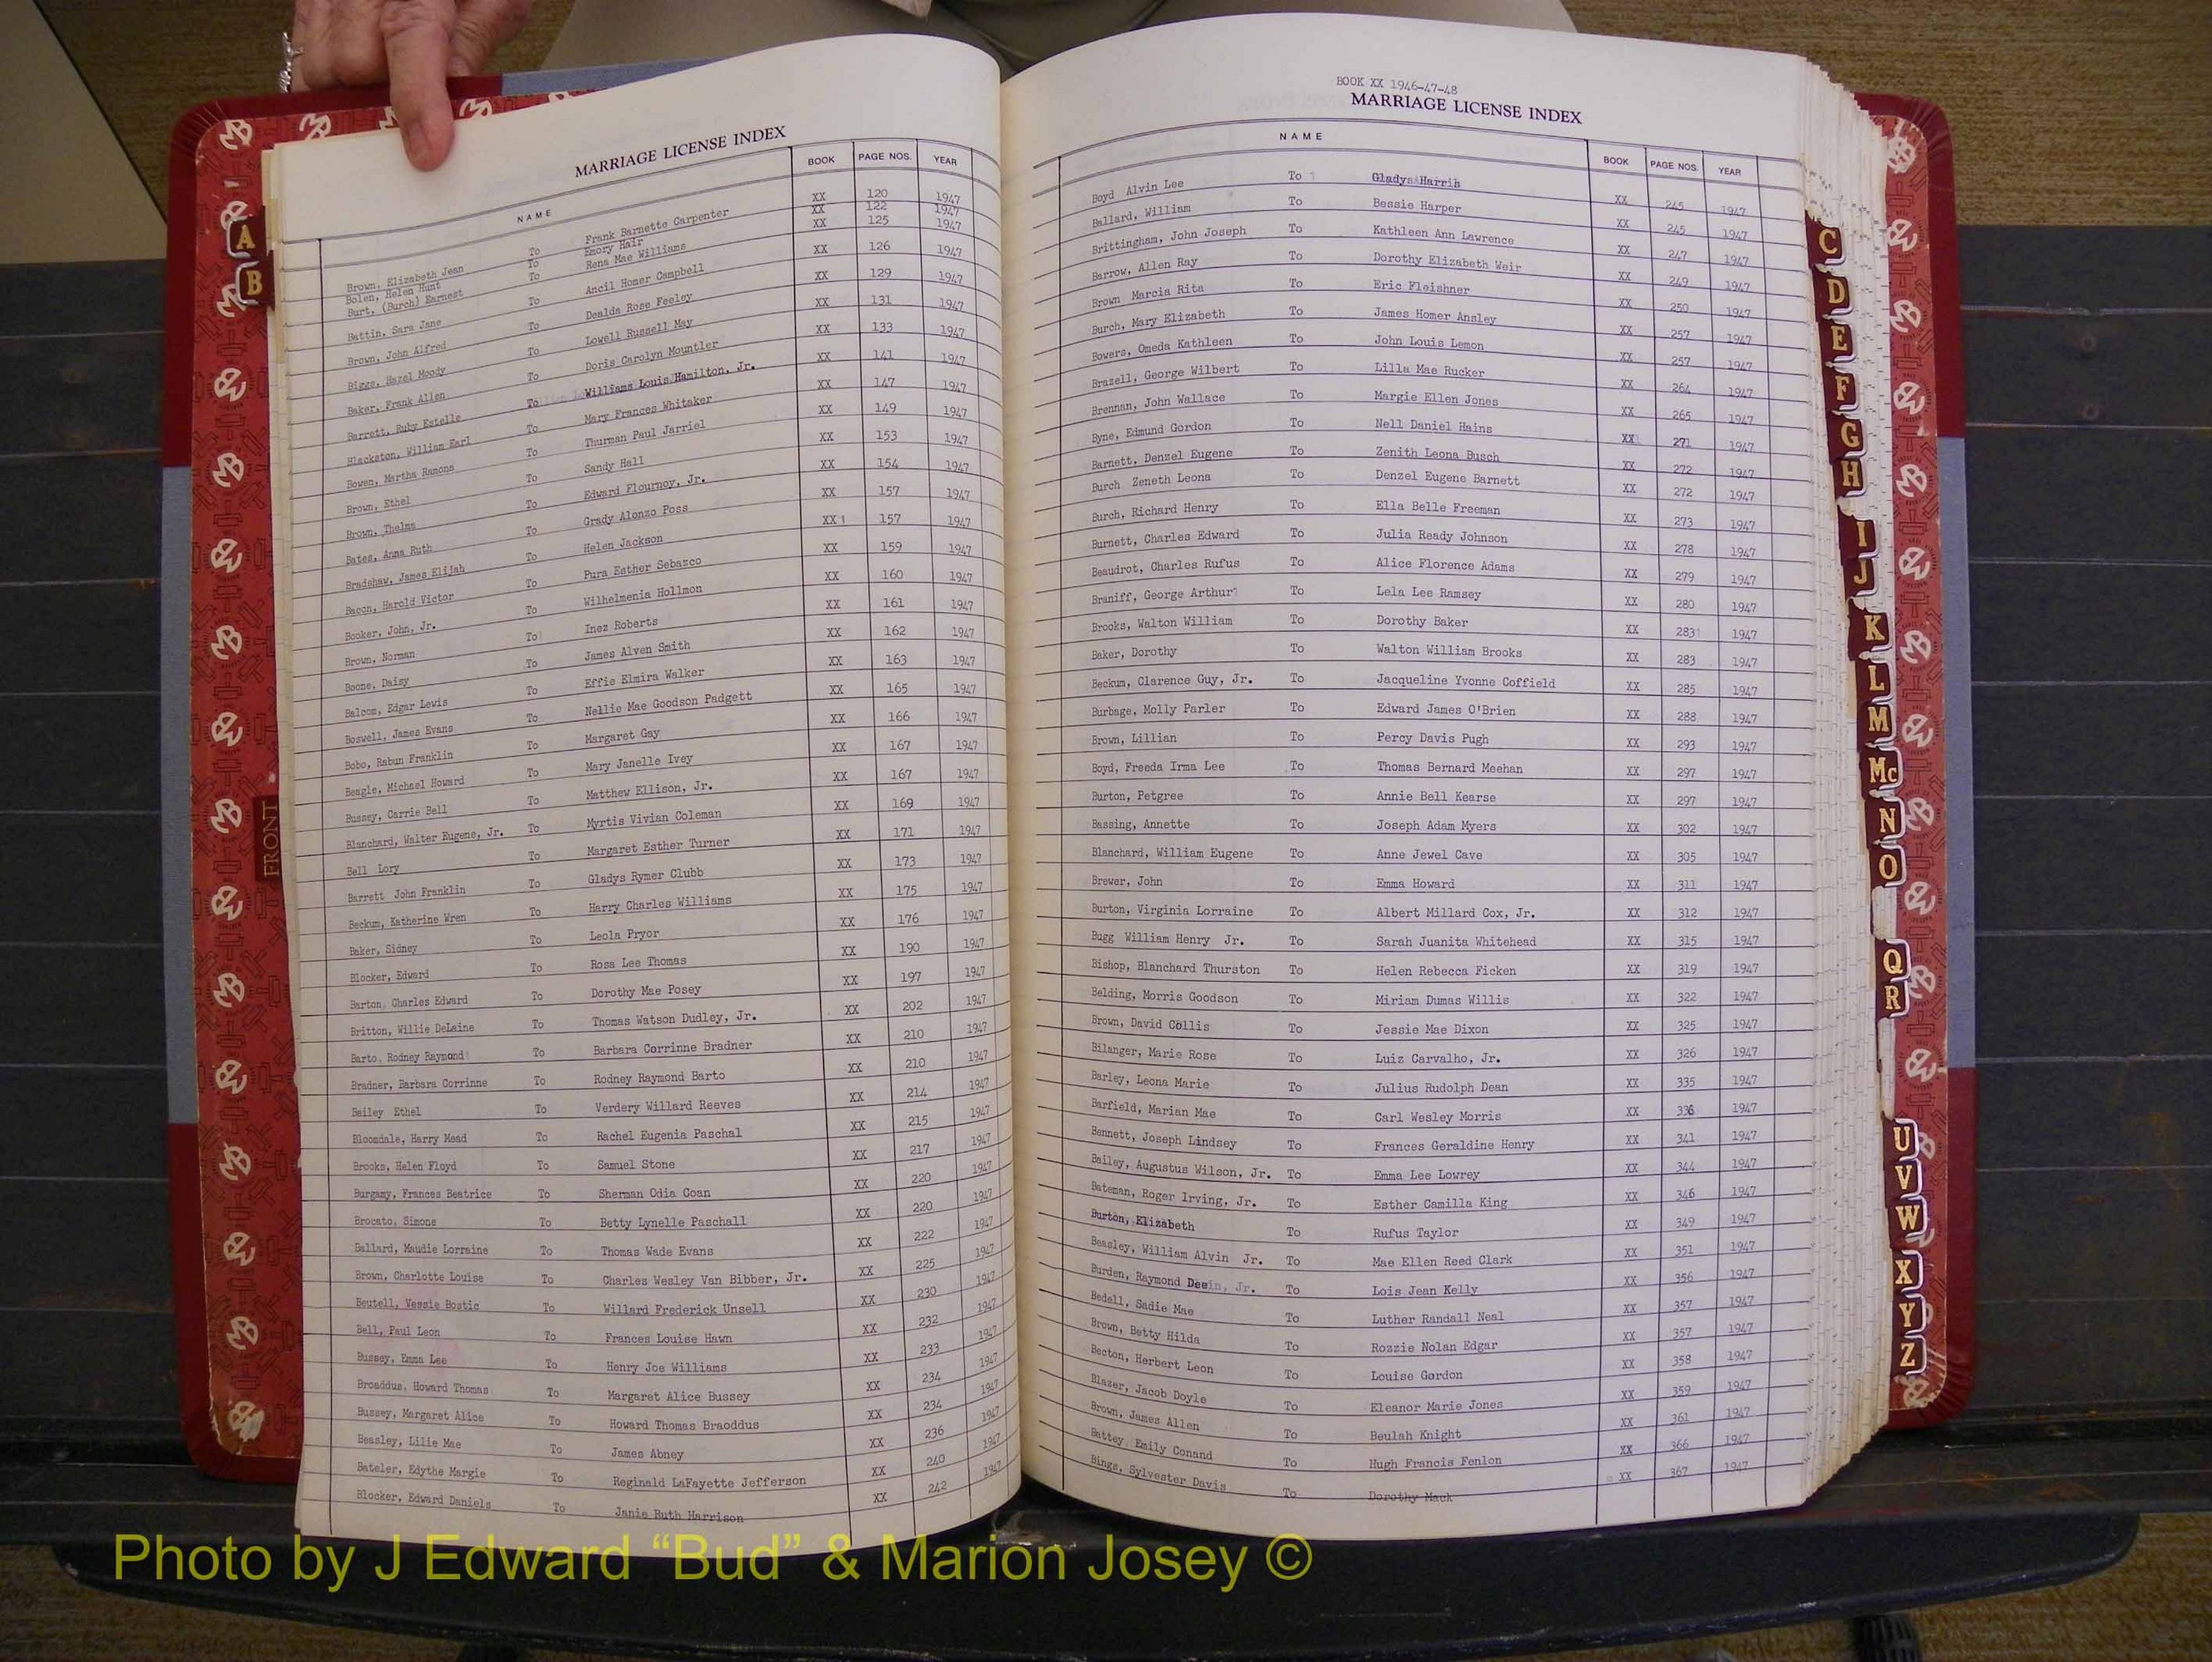 MARRIAGE LICENSE INDEX
NAME BOOK PAGE NOS. YEAR
Brown, Elizabeth Jean To Frank Barnette Carpenter XX 120 1947
Bolen, Helen Hunt To Emory Hair XX 122 1947
Burt, (Burch) Earnest To Rena Mae Williams XX 125 1947
Battin, Sara Jane To Ancil Homer Campbell XX 126 1947
Brown, John Alfred To Dealda Rose Feeley XX 129 1947
Biggs, Hazel Moody To Lowell Russell May XX 131 1947
Baker, Frank Allen To Doris Carolyn Mountler XX 133 1947
Barrett, Ruby Estelle To Williams Louis Hamilton, Jr. XX 141 1947
Blackston, William Earl To Mary Frances Whitaker XX 147 1947
Bowen, Martha Ramona To Thurman Paul Jarriel XX 149 1947
Brown, Ethel To Sandy Hall XX 153 1947
Brown, Thelma To Edward Flournoy, Jr. XX 154 1947
Bates, Anna Ruth To Grady Alonzo Poss XX 157 1947
Bradshaw, James Elijah To Helen Jackson XX 157 1947
Bacon, Harold Victor To Pura Esther Sebazco XX 159 1947
Booker, John, Jr. To Wilhelmenia Hollmon XX 160 1947
Brown, Norman To Inez Roberts XX 161 1947
Boone, Daisy To James Alven Smith XX 162 1947
Balcom, Edgar Lewis To Effie Elmira Walker XX 163 1947
Boswell, James Evans To Nellie Mae Goodson Padgett XX 165 1947
Bobo, Rabun Franklin To Margaret Gay XX 166 1947
Beagle, Michael Howard To Mary Janelle Ivey XX 167 1947
Bussey, Carrie Bell To Matthew Ellison, Jr. XX 167 1947
Blanchard, Walter Eugene, Jr. To Myrtis Vivian Coleman XX 169 1947
Bell Lory To Margaret Esther Turner XX 171 1947
Barrett John Franklin To Gladys Rymer Clubb XX 173 1947
Beckum, Katherine Wren To Harry Charles Williams XX 175 1947
Baker, Sidney To Leola Pryor XX 176 1947
Blocker, Edward To Rosa Lee Thomas XX 190 1947
Barton, Charles Edward To Dorothy Mae Posey XX 197 1947
Britton, Willie DeLaine To Thomas Watson Dudley, Jr. XX 202 1947
Barto, Rodney Raymond To Barbara Corrinne Bradner XX 210 1947
Bradner, Barbara Corrinne To Rodney Raymond Barto XX 210 1947
Bailey Ethel To Verdery Willard Reeves XX 214 1947
Bloomdale, Harry Mead To Rachel Eugenia Paschal XX 215 1947
Brooks, Helen Floyd To Samuel Stone XX 217 1947
Burgamy, Frances Beatrice To Sherman Odia Goan XX 220 1947
Brocato, Simone To Betty Lynelle Paschall XX 220 1947
Ballard, Maudie Lorraine To Thomas Wade Evans XX 222 1947
Brown, Charlotte Louise To Charles Wesley Van Bibber, Jr. XX 225 1947
Beutell, Vessie Bostic To Willard Frederick Unsell XX 230 1947
Bell, Paul Leon To Frances Louise Hawn XX 232 1947
Bussey, Emma Lee To Henry Joe Williams XX 233 1947
Broaddus, Howard Thomas To Margaret Alice Bussey XX 234 1947
Bussey, Margaret Alice To Howard Thomas Braoddus XX 234 1947
Beasley, Lilie Mae To James Abney XX 236 1947
Bateler, Edythe Margie To Reginald LaFayette Jefferson XX 240 1947
Blocker, Edward Daniels To Janie Ruth Harrison XX 242
BOOK XX 1946-47-48
MARRIAGE LICENSE INDEX
NAME BOOK PAGE NOS. YEAR
Boyd Alvin Lee To Gladys Harris XX 245 1947
Ballard, William To Bessie Harper XX 245 1947
Brittingham, John Joseph To Kathleen Ann Lawrence XX 247 1947
Barrow, Allen Ray To Dorothy Elizabeth Weir XX 249 1947
Brown Marcia Rita To Eric Fleishner XX 250 1947
Burch, Mary Elizabeth To James Homer Ansley XX 257 1947
Bowers, Omeda Kathleen To John Louis Lemon XX 257 1947
Brazell, George Wilbert To Lilla Mae Rucker XX 264 1947
Brennan, John Wallace To Margie Ellen Jones XX 265 1947
Byne, Edmund Gordon To Nell Daniel Hains XX 271 1947
Barnett, Denzel Eugene To Zenith Leona Busch XX 272 1947
Burch Zeneth Leona To Denzel Eugene Barnett XX 272 1947
Burch, Richard Henry To Ella Belle Freeman XX 273 1947
Burnett, Charles Edward To Julia Ready Johnson XX 278 1947
Beaudrot, Charles Rufus To Alice Florence Adams XX 279 1947
Braniff, George Arthur To Lela Lee Ramsey XX 280 1947
Brooks, Walton William To Dorothy Baker XX 283 1947
Baker, Dorothy To Walton William Brooks XX 283 1947
Beckum, Clarence Guy, Jr. To Jacqueline Yvonne Coffield XX 285 1947
Burbage, Molly Parler To Edward James O'Brien XX 288 1947
Brown, Lillian To Percy Davis Pugh XX 293 1947
Boyd, Freeda Irma Lee To Thomas Bernard Meehan XX 297 1947
Burton, Petgree To Annie Bell Kearse XX 297 1947
Bassing, Annette To Joseph Adam Myers XX 302 1947
Blanchard, William Eugene To Anne Jewel Cave XX 305 1947
Brewer, John To Emma Howard XX 311 1947
Burton, Virginia Lorraine To Albert Millard Cox, Jr. XX 312 1947
Bugg William Henry Jr. To Sarah Juanita Whitehead XX 315 1947
Bishop, Blanchard Thurston To Helen Rebecca Ficken XX 319 1947
Belding, Morris Goodson To Miriam Dumas Willis XX 322 1947
Brown, David Collis To Jessie Mae Dixon XX 325 1947
Bilanger, Marie Rose To Luiz Carvalho, Jr. XX 326 1947
Barley, Leona Marie To Julius Rudolph Dean XX 335 1947
Barfield, Marian Mae To Carl Wesley Morris XX 336 1947
Bennett, Joseph Lindsey To Frances Geraldine Henry XX 341 1947
Bailey, Augustus Wilson, Jr. To Emma Lee Lowrey XX 344 1947
Bateman, Roger Irving, Jr. To Esther Camilla King XX 346 1947
Burton, Elizabeth To Rufus Taylor XX 349 1947
Beasley, William Alvin Jr. To Mae Ellen Reed Clark XX 351 1947
Burden, Raymond Deein, Jr. To Lois Jean Kelly XX 356 1947
Bedell, Sadie Mae To Luther Randall Neal XX 357 1947
Brown, Betty Hilda To Rozzie Nolan Edgar XX 357 1947
Becton, Herbert Leon To Louise Gordon XX 358 1947
Blazer, Jacob Doyle To Eleanor Marie Jones XX 359 1947
Brown, James Allen To Beulah Knight XX 361 1947
Battey Emily Conand To Hugh Francis Fenlon XX 366 1947
Bings, Sylvester Davis To Dorothy Mack XX 367 1947
A
B
FRONT
C
D
E
F
G
H
I
J
K
L
M
Mc
N
O
Q
R
U
V
W
X
Y
Z
Photo by J Edward “Bud” & Marion Josey ©